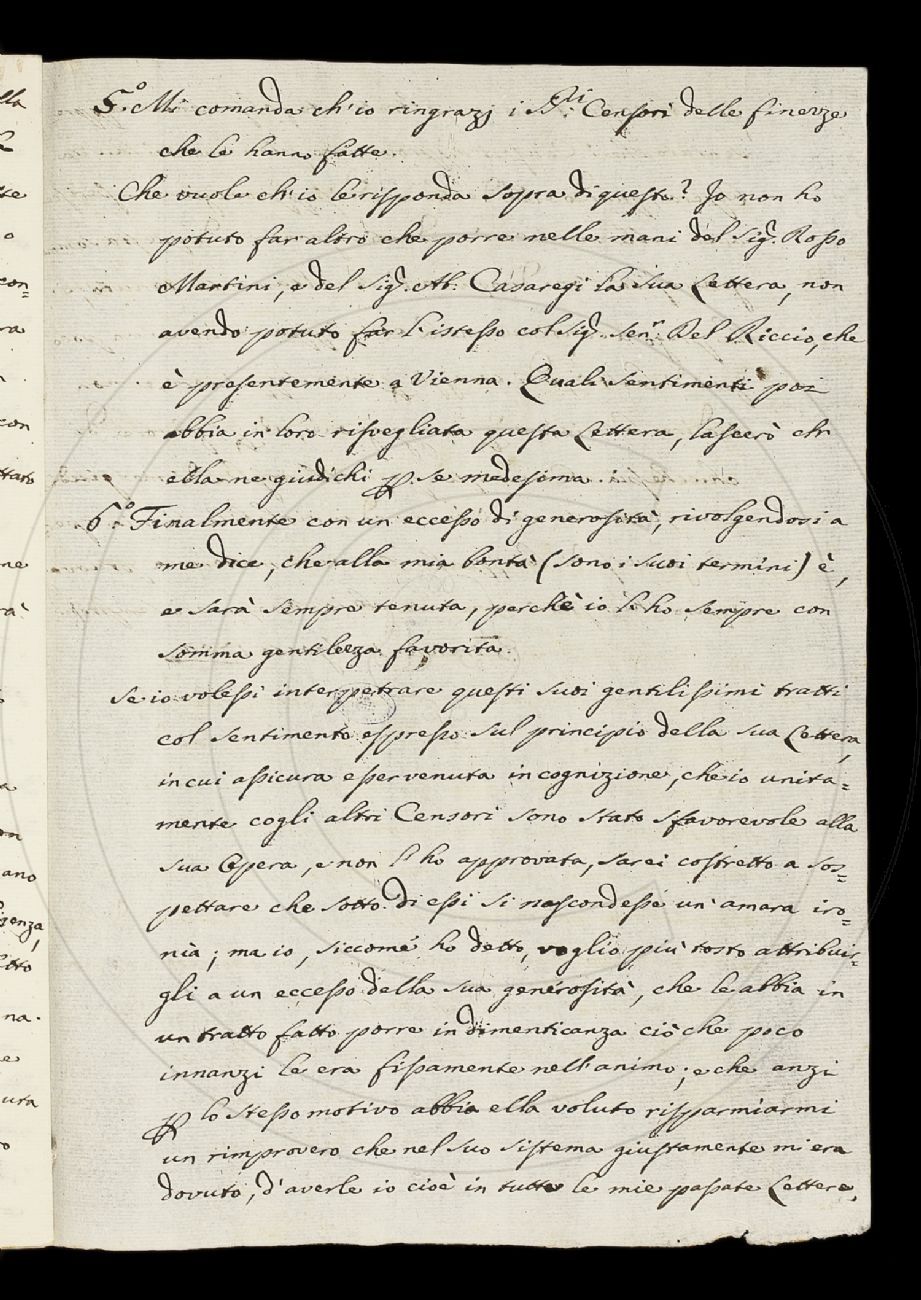 5.º Mi comanda ch'io ringrazj i SS.ri Censori delle finezze
che le hanno fatte.
Che vuole ch'io le risponda sopra di questo? Io non ho
potuto far altro che porre nelle mani del Sig.r Rosso
Martini, e del Sig.r Ab. Casaregi la sua Lettera, non
avendo potuto far l'istesso col Sig.r Sen.r Del Riccio, che
è presentemente a Vienna. Quali sentimenti poi
abbia in loro risvegliata questa Lettera, lascerò ch'
ella ne giudichi p se medesima.
6.º Finalmente con un eccesso di generosità, rivolgendosi a
me dice, che alla mia bontà (sono i suoi termini) è,
e sarà sempre tenuta, perchè io l'ho sempre con
somma gentilezza favorita.
Se io volessi interpetrare questi suoi gentilissimi tratti
col sentimento espresso sul principio della sua Lettera,
in cui assicura esser venuta in cognizione, che io unita=
mente cogli altri Censori sono stato sfavorevole alla
sua Opera, e non l'ho approvata, sarei costretto a sos=
pettare che sotto di essi si nascondesse un'amara iro=
nia; ma io, siccome ho detto, voglio più tosto attribuir=
gli a un eccesso della sua generosità, che le abbia in
un tratto fatto porre in dimenticanza ciò che poco
innanzi le era fissamente nell'animo; e che anzi
p lo stesso motivo abbia ella voluto risparmiarmi
un rimprovero che nel suo sistema giustamente mi era
dovuto, d'averle io cioè in tutte le mie passate Lettere,